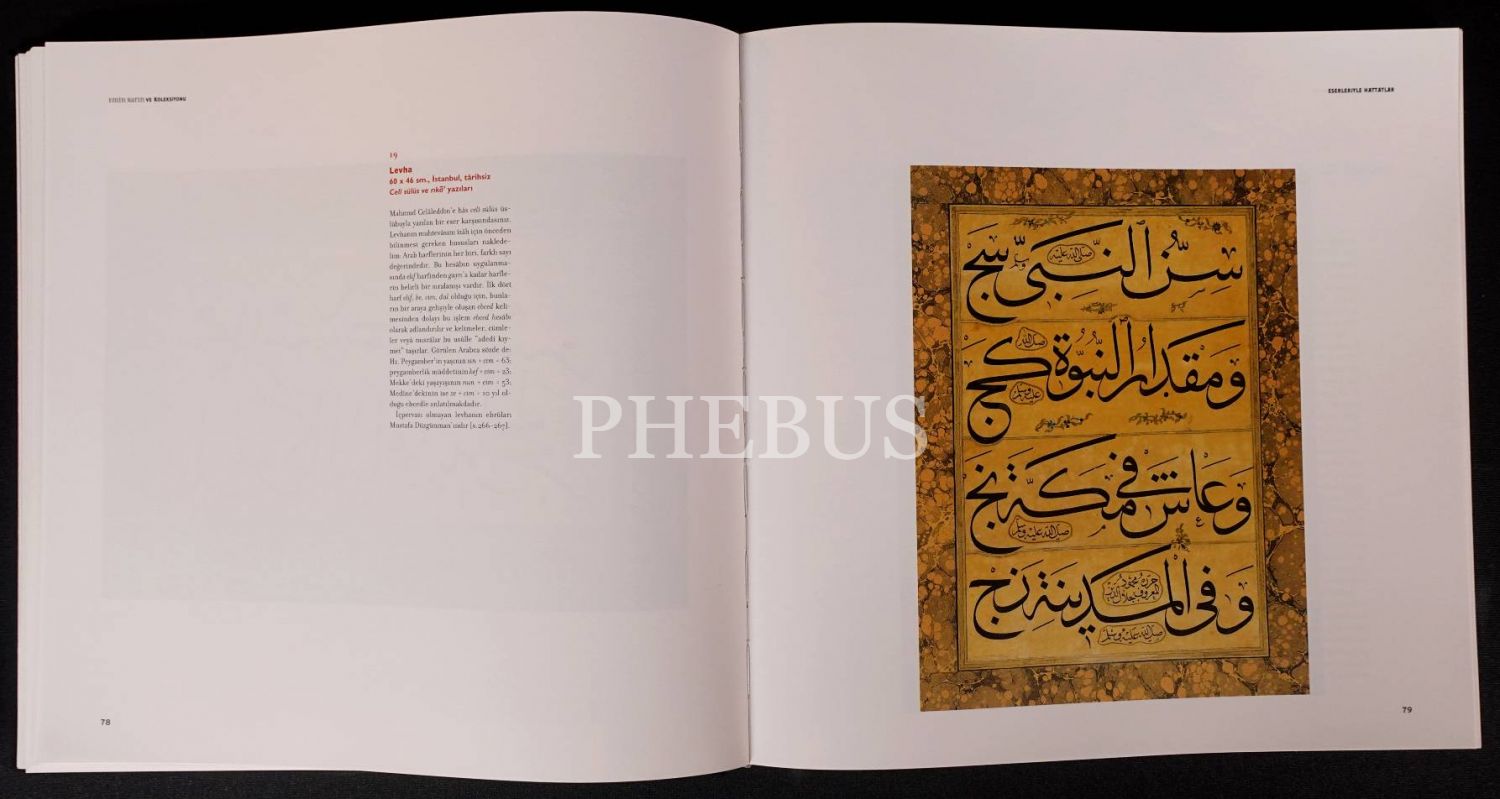 EMİN BARIN VE KOLEKSİYONU
19
Levha
60 x 46 sm., İstanbul, târihsiz
Celî sülüs ve rıkā' yazıları
Mahmud Celâleddîn'e hâs celî sülüs üs-
lûbuyla yazılan bir eser karşısındasınız.
Levhanın muhtevâsını îzâh için önceden
bilinmesi gereken hususları naklede-
lim: Arab harflerinin her biri, farklı sayı
değerindedir. Bu hesâbın uygulanma-
sında elif harfinden gayn'a kadar harfle-
rin belirli bir sıralanışı vardır. İlk dört
harf elif, be, cim, dal olduğu için, bunla-
rın bir araya gelişiyle oluşan ebced keli-
mesinden dolayı bu işlem ebced hesâbı
olarak adlandırılır ve kelimeler, cümle-
ler veyâ mısrâlar bu usûlle "adedî kıy-
met" taşırlar. Görülen Arabca sözde de:
Hz. Peygamber'in yaşının sin + cim = 63;
peygamberlik müddetinin kef + cim = 23;
Mekke'deki yaşayışının nun + cim = 53;
Medîne'dekinin ise ze + cim = 10 yıl ol-
duğu ebcedle anlatılmakdadır.
İçpervazı olmayan levhanın ebrûları
Mustafa Düzgünman'ındır [s. 266-267].
78
PHEBUS
ESERLERİYLE HATTATLAR
سن النبي صلى الله عليه وسلم سج
ومقدار النبوة صلى الله عليه وسلم كج
وعاش في مكة نج
صلى الله عليه وسلم
وفي المدينة زج
حرره محمود المعروف بجلال الدين
صلى الله عليه وسلم
79